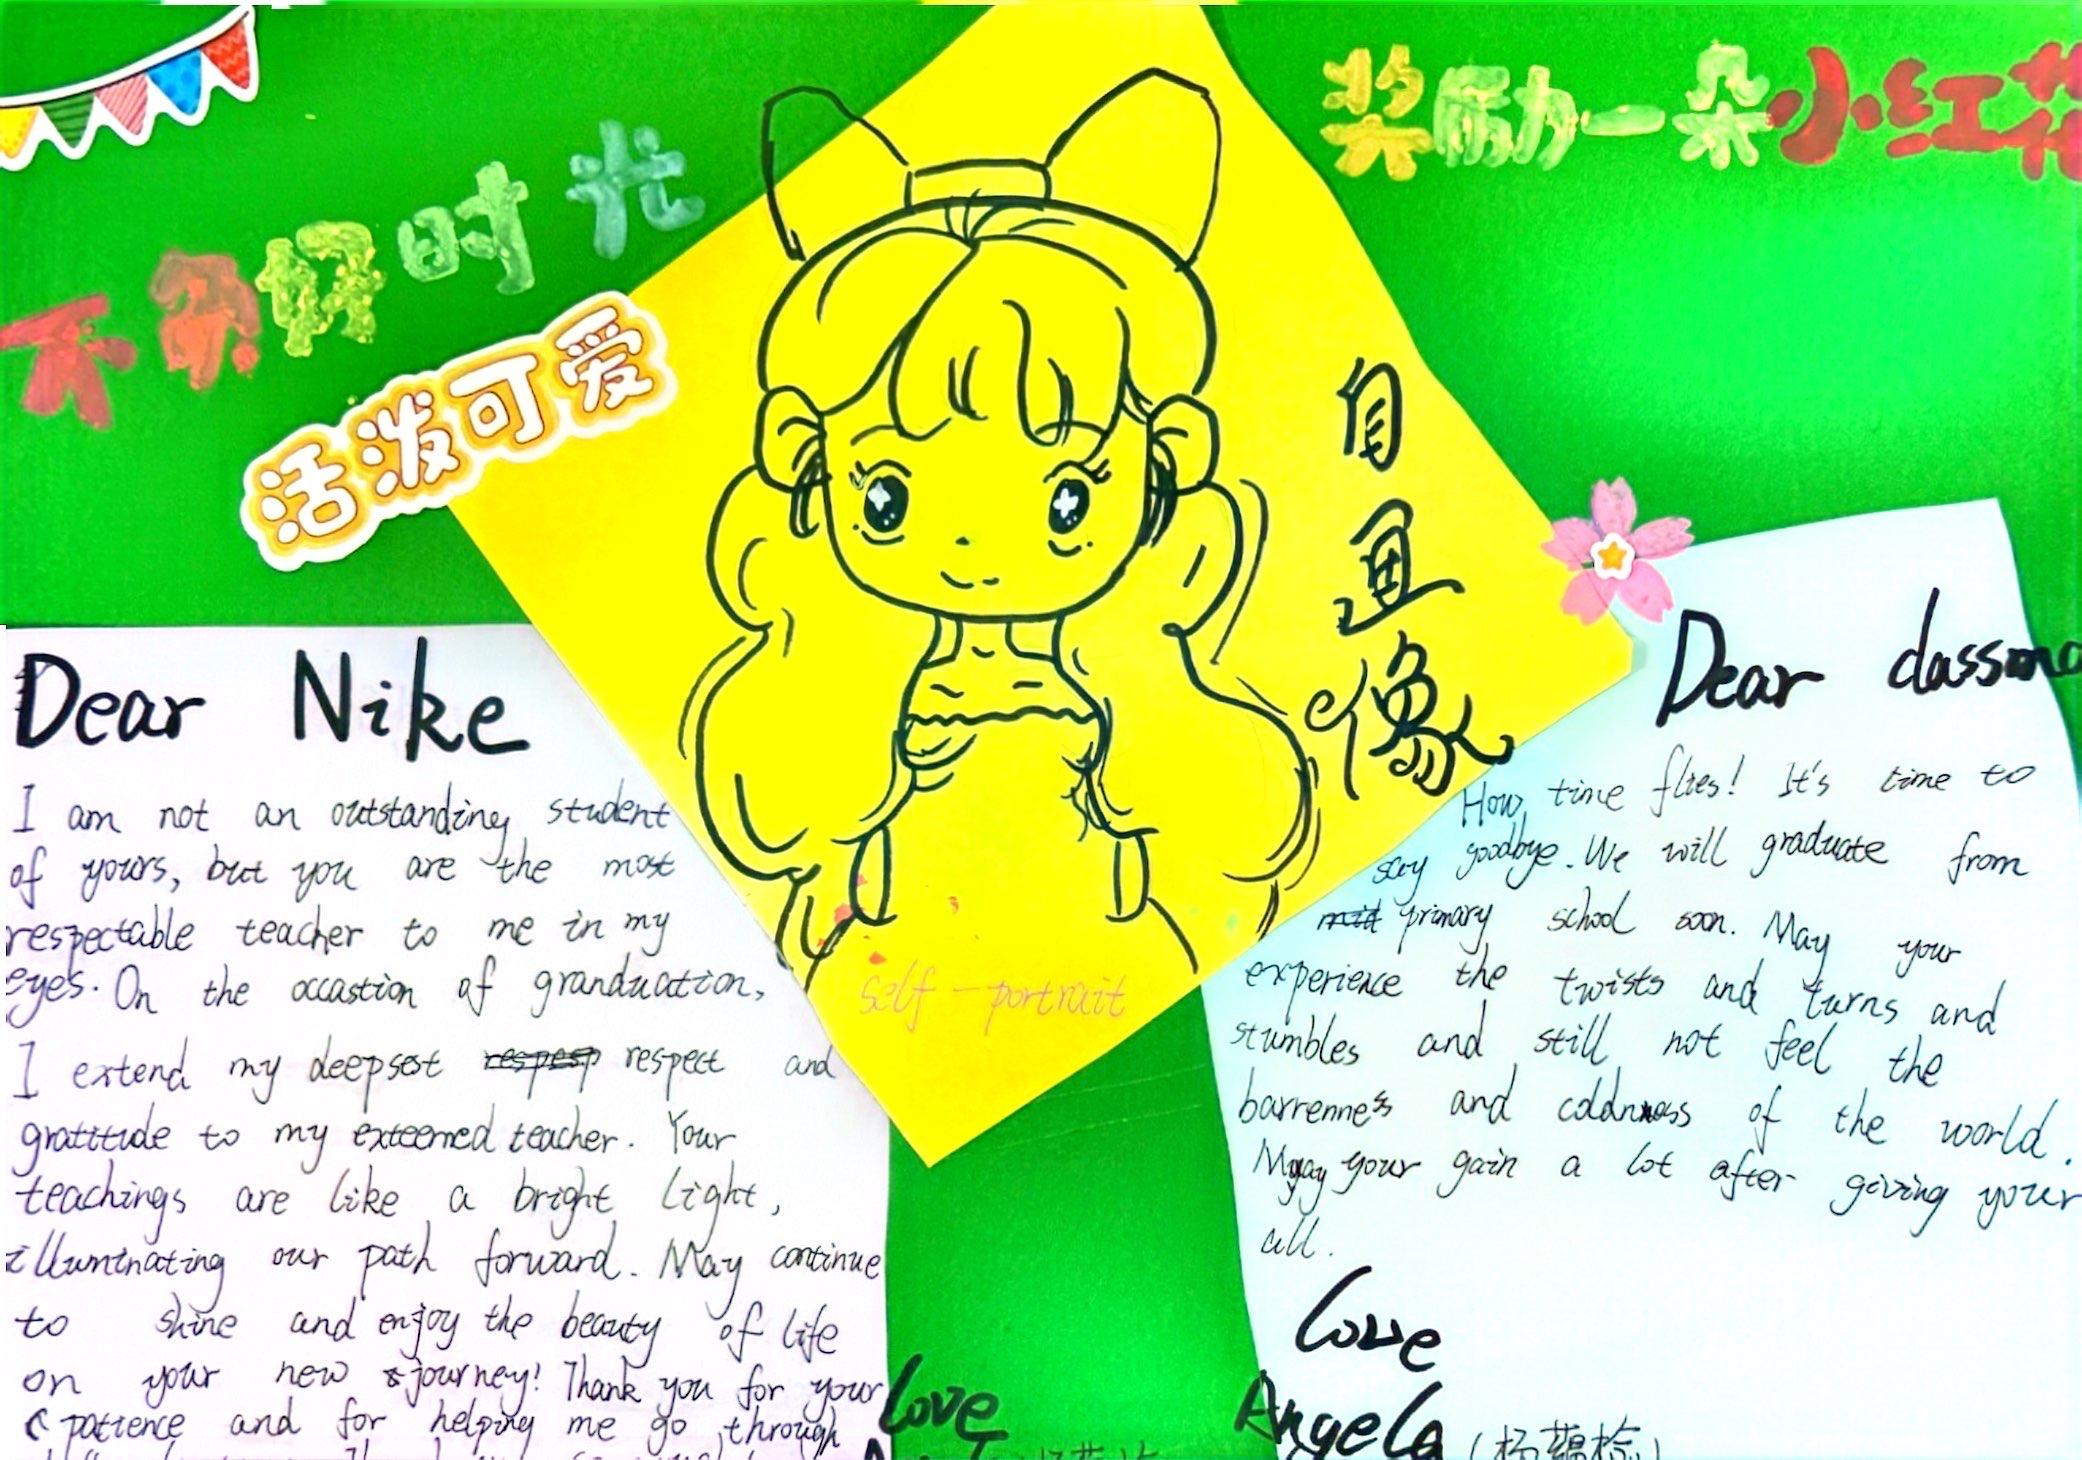 不负好时光
奖励一朵小红花
活泼可爱
自画像
self-portrait
Dear Nike
I am not an outstanding student
of yours, but you are the most
respectable teacher to me in my
eyes. On the occastion of granduation,
I extend my deepsest respect and
gratitude to my exteemed teacher. Your
teachings are like a bright light,
illuminating our path forward. May continue
to shine and enjoy the beauty of life
on your new journey! Thank you for your
patience and for helping me go through
Love
Dear
How time flies! It's time to
say goodbye. We will graduate from
primary school soon. May your
experience the twists and turns and
stumbles and still not feel the
barrenness and coldnness of the world.
May your gain a lot after giving your
all.
Love
Angela